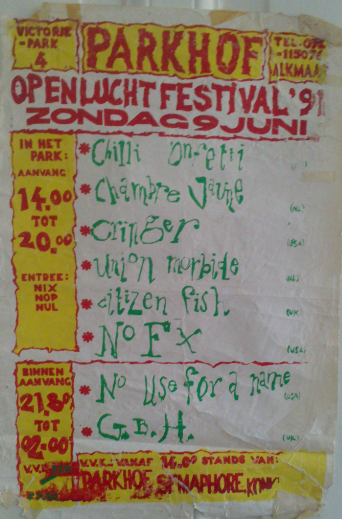 VICTORIE
-PARK
4
PARKHOF
TEL. 072
-115076
ALKMAAR
OPENLUCHT FESTIVAL '91
ZONDAG 9 JUNI
IN HET
PARK:
AANVANG
14.00
TOT
20.00
ENTREE:
NIX
NOP
NUL
* Chilli Confetti
* Chambre Jaune (NL)
* Cringer (USA)
* Union morbide (NL)
* citizen fish (UK)
* No F X (USA)
BINNEN
AANVANG
21.30
TOT
02.00
* No use for a name (USA)
* G.B.H. (UK)
V.V.K.
V.V.K. VANAF 14.00 STANDS VAN:
PARKHOF, SEMAPHORE, KONK